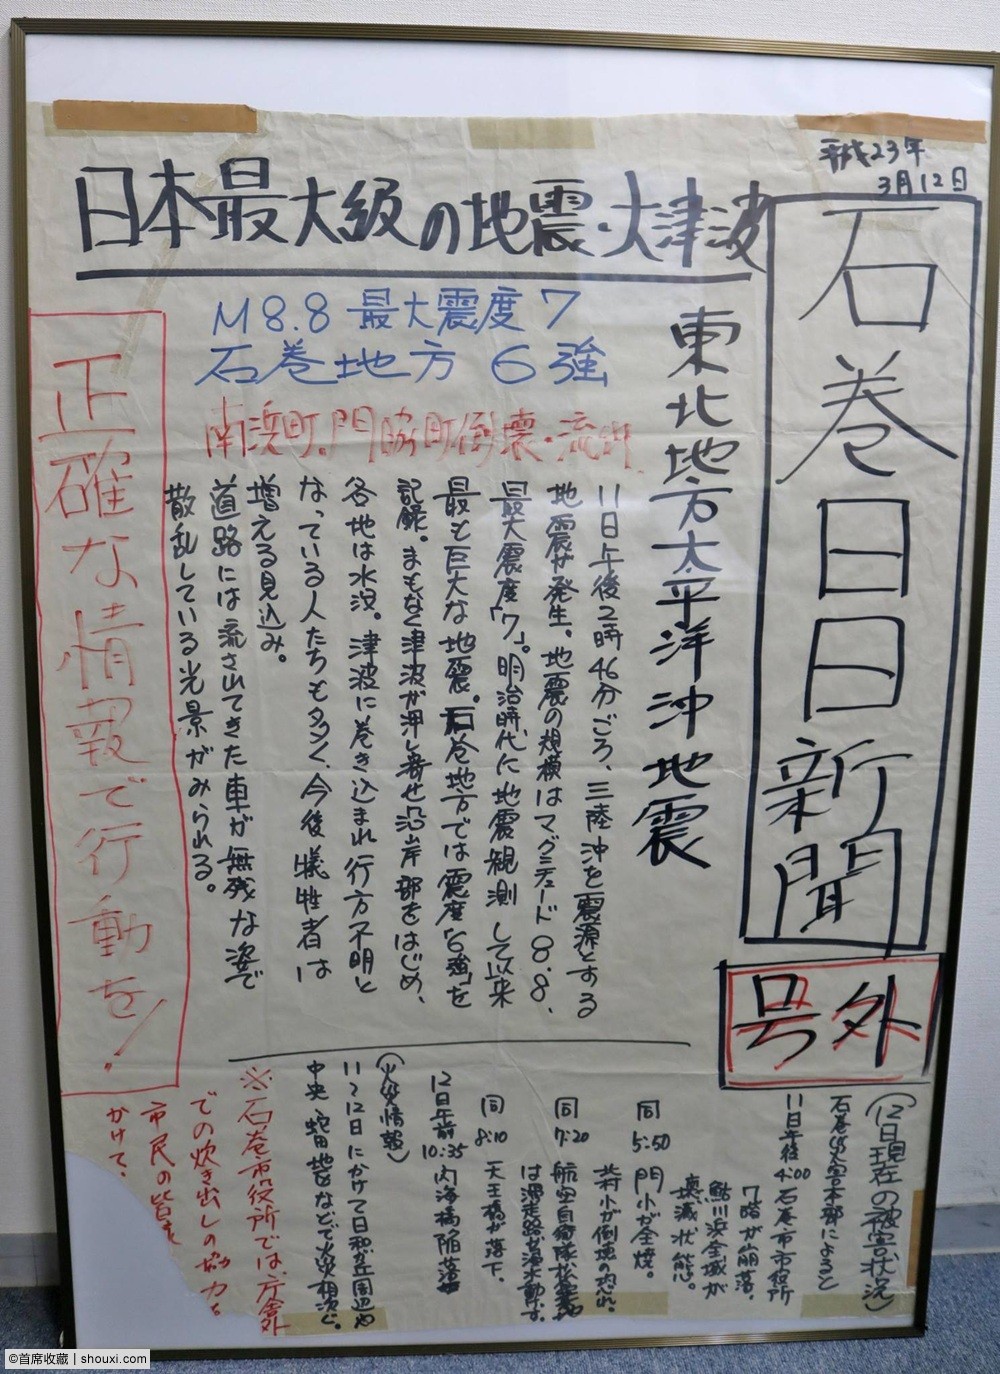 平成23年
3月12日
石巻日日新聞
号外
日本最大級の地震・大津波
東北地方太平洋沖地震
M8.8 最大震度7
石巻地方 6強
南浜町、門脇町倒壊・流出
11日午後2時46分ごろ、三陸沖を震源とする
地震が発生。地震の規模はマグニチュード8.8、
最大震度「7」。明治時代に地震観測して以来
最も巨大な地震。石巻地方では震度「6強」を
記録。まもなく津波が押し寄せ沿岸部をはじめ、
各地は水没。津波に巻き込まれ行方不明と
なっている人たちも多く、今後犠牲者は
増える見込み。
道路には流されてきた車が無残な姿で
散乱している光景がみられる。
正確な情報で行動を!
(12日現在の被害状況)
石巻災害本部によると
11日午後4:00 石巻市市役所
7階が崩落。
鮎川浜全域が
壊滅状態。
同 5:50 門小が全焼。
北村小が倒壊の恐れ。
同 7:20 航空自衛隊松島基地
は滑走路が浸水
同 8:10 天王橋が落下。
12日午前10:35 内海橋陥落
(火災情報)
11〜12日にかけて日和が丘周辺や
中央、蛇田地区などで火災相次ぐ。
※石巻市役所では、庁舎外
での炊き出しの協力を
市民の皆さ
かけて、
©首席收藏 | shouxi.com